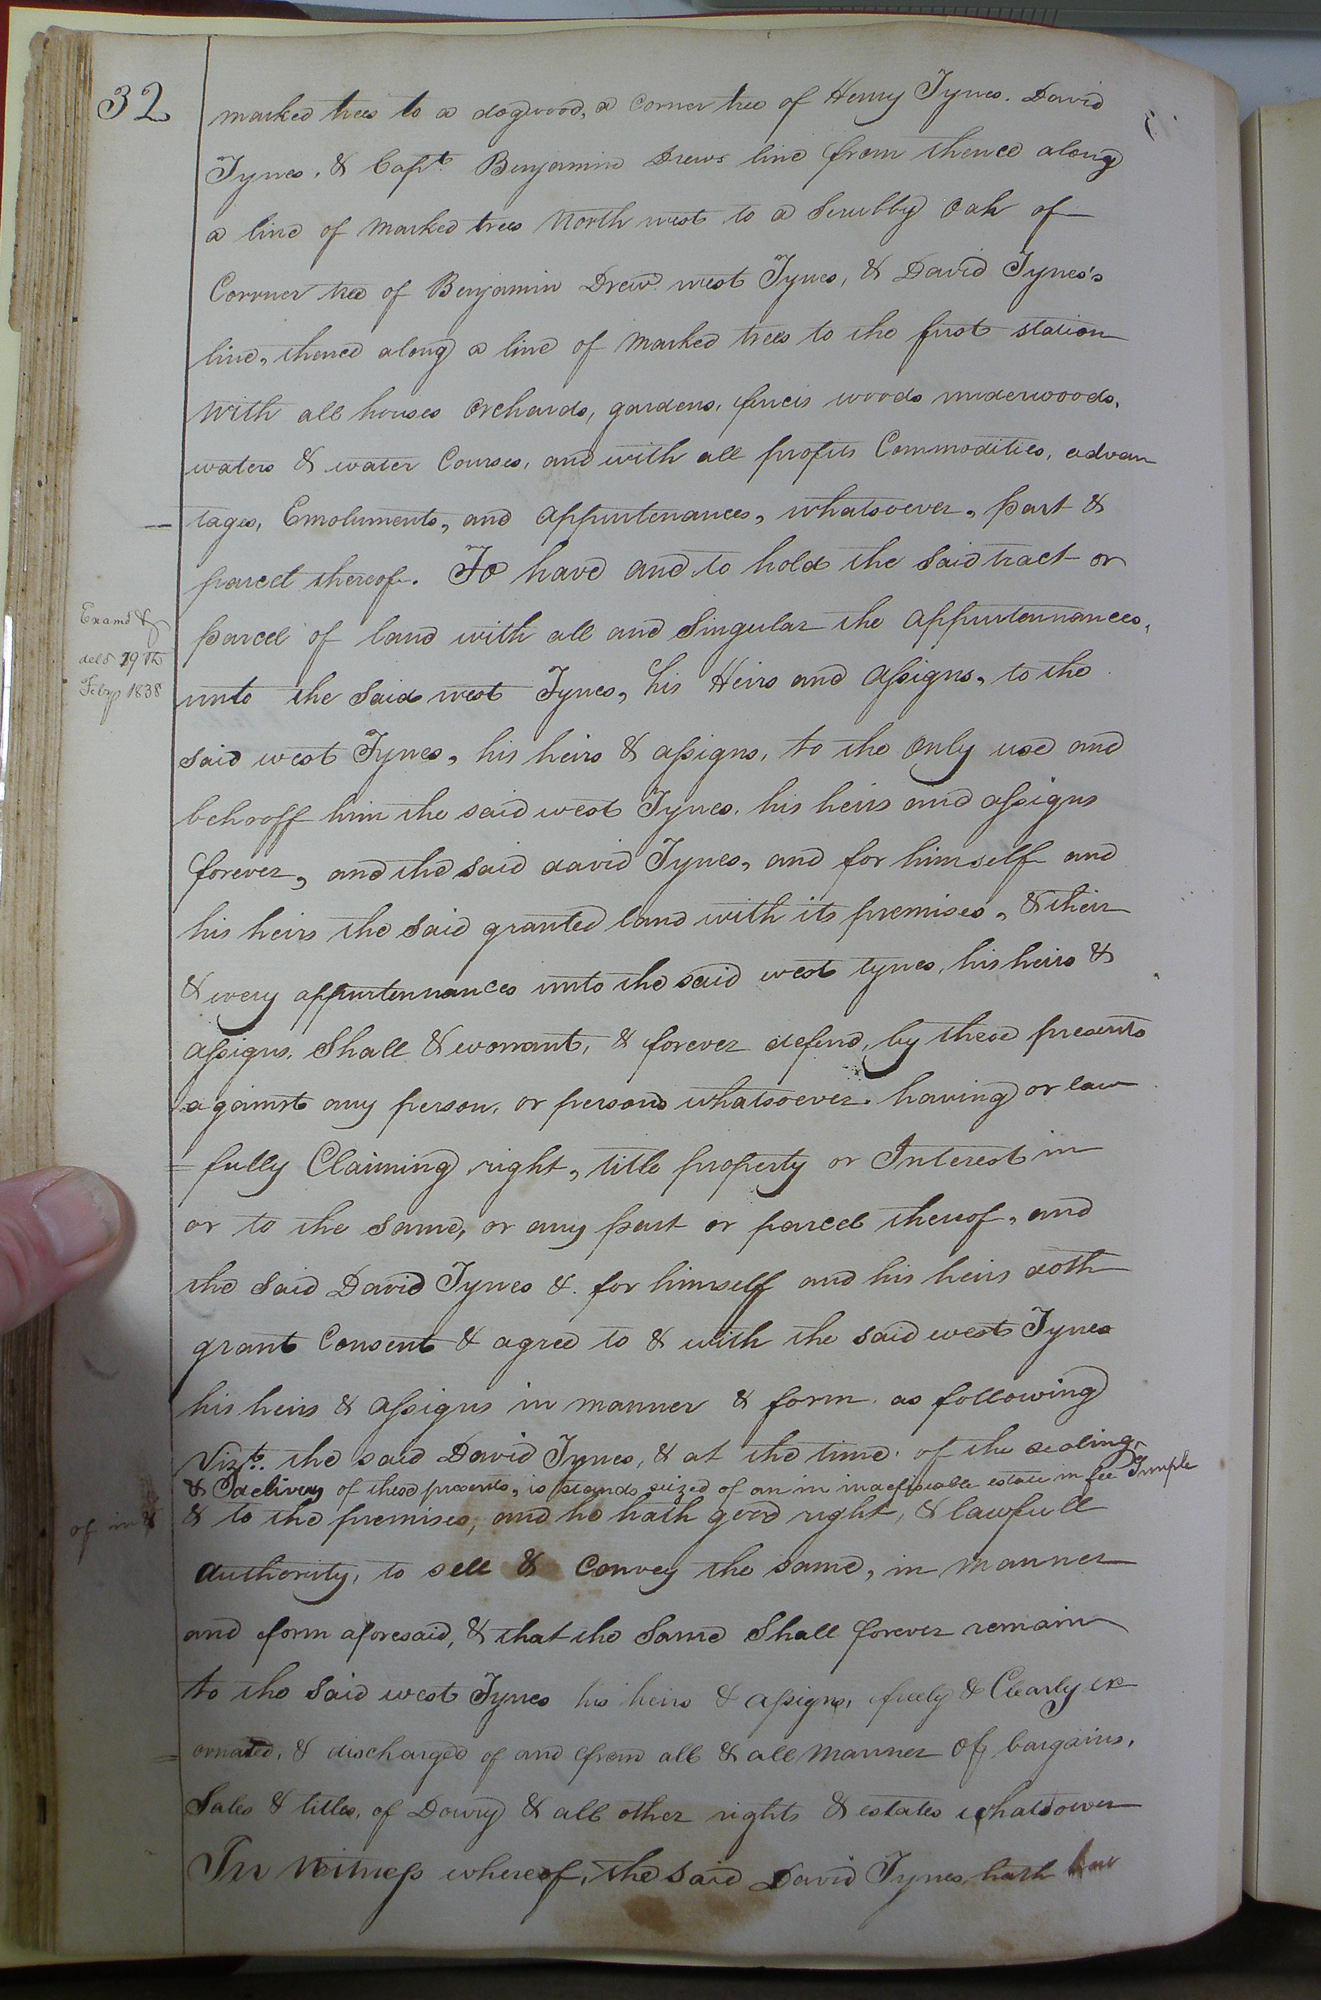 32
marked trees to a dogwood, a corner tree of Henry Tynes. David
Tynes. & Capt. Benjamin Drews line from thence along
a line of marked trees North west to a Scrubby Oak of
Cornner tree of Benjamin Drew west Tynes, & David Tynes's
line, thence along a line of marked trees to the first station
With all houses Orchards, gardens, fences woods underwoods,
waters & water Courses, and with all profits Commodities, advan
tages, Emoluments, and appurtenances, whatsoever, part &
parcel thereof. To have and to hold the said tract or
parcel of land with all and Singular the appurtennances,
unto the Said west Tynes, his Heirs and assigns, to the
said west Tynes, his heirs & assigns, to the only use and
behooff him the said west Tynes, his heirs and assigns
forever, and the said david Tynes, and for himself and
his heirs the said granted land with its premises, & their
& every appurtennances unto the said west tynes, his heirs &
assigns, Shall & worrant, & forever defend, by these presents
against any person, or persons whatsoever. having or law
= fully Claiming right, title property or Interest in
or to the same, or any part or parcel thereof, and
the said David Tynes &. for himself and his heirs doth
grant Consent & agree to & with the said west Tynes
his heirs & assigns in manner & form as following
Vizt. the said David Tynes, & at the time of the sealing,
& delivery of these presents, is stands seized of an in inadefeseable estate in fee Simple
& to the premises, and he hath good right, & lawfull
authority, to sell & convey the same, in manner
and form aforesaid, & that the Same Shall forever remain
to the said west Tynes his heirs & assigns, freely & Clearly ex
= ornated, & discharged of and from all & all manner of bargains,
Sales & titles, of Dowry & all other rights & estates whatsoever
In Witness whereof, the said David Tynes, hath
Examd &
deld 19th
Feby 1838
of in &